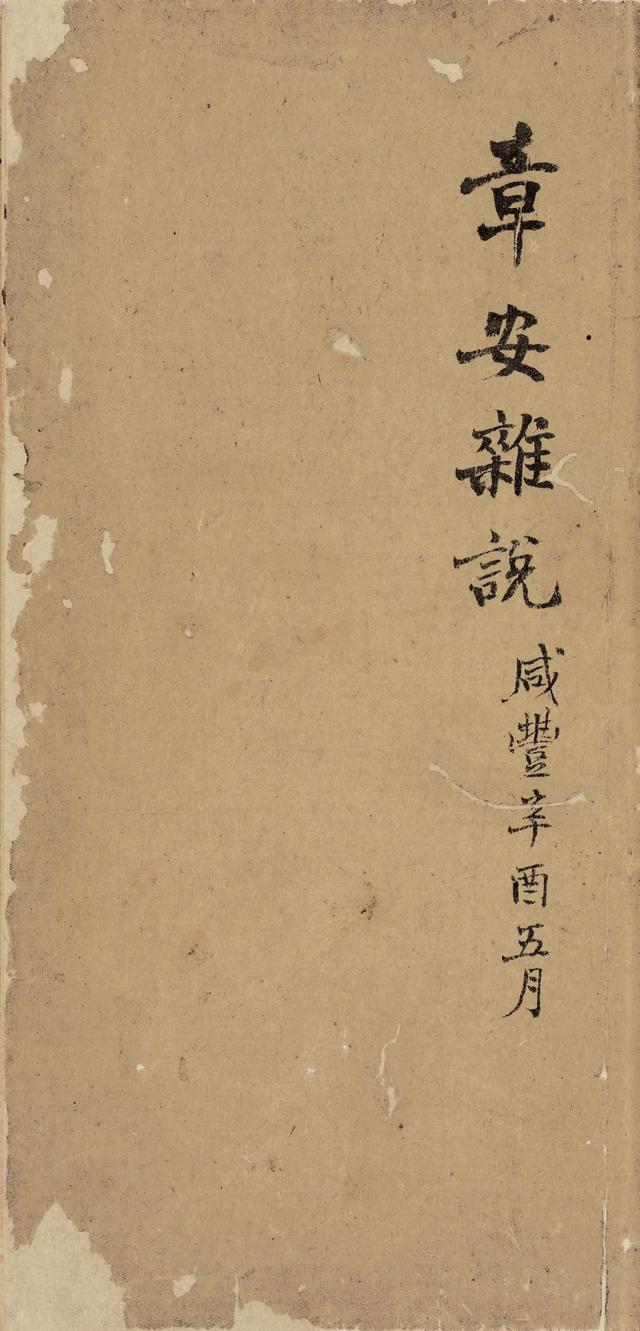 章安雜說 咸豐辛酉五月